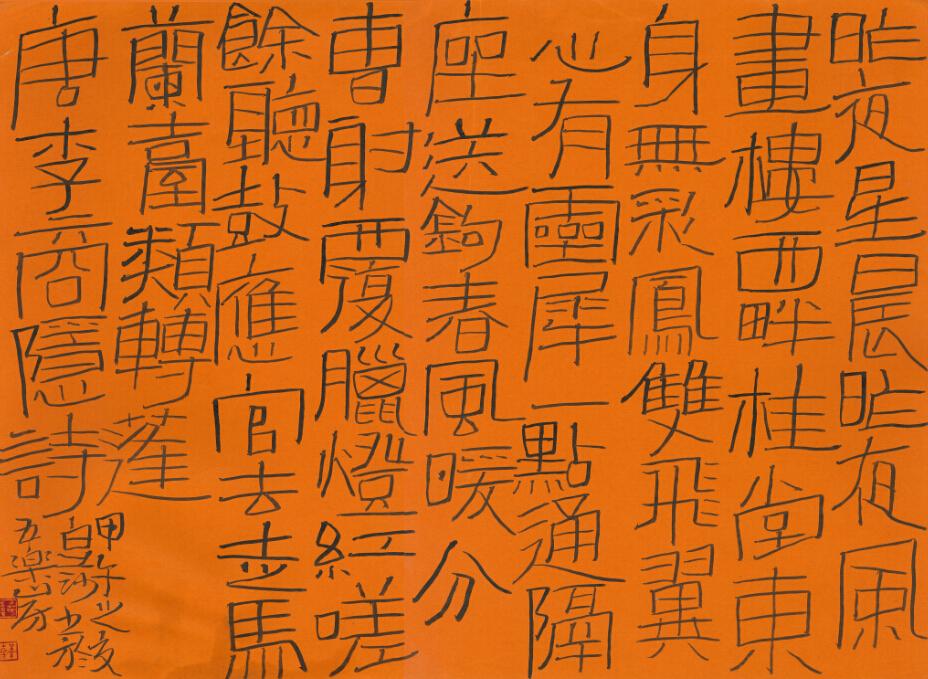 昨夜星晨昨夜風
畫樓西畔桂堂東
身無彩鳳雙飛翼
心有靈犀一點通隔
座送鉤春風暖分
曹射覆臘燈紅嗟
餘聽鼓應官去走馬
蘭臺類轉蓬
唐李商隱詩
甲午之夏
沙书於
五樂山房